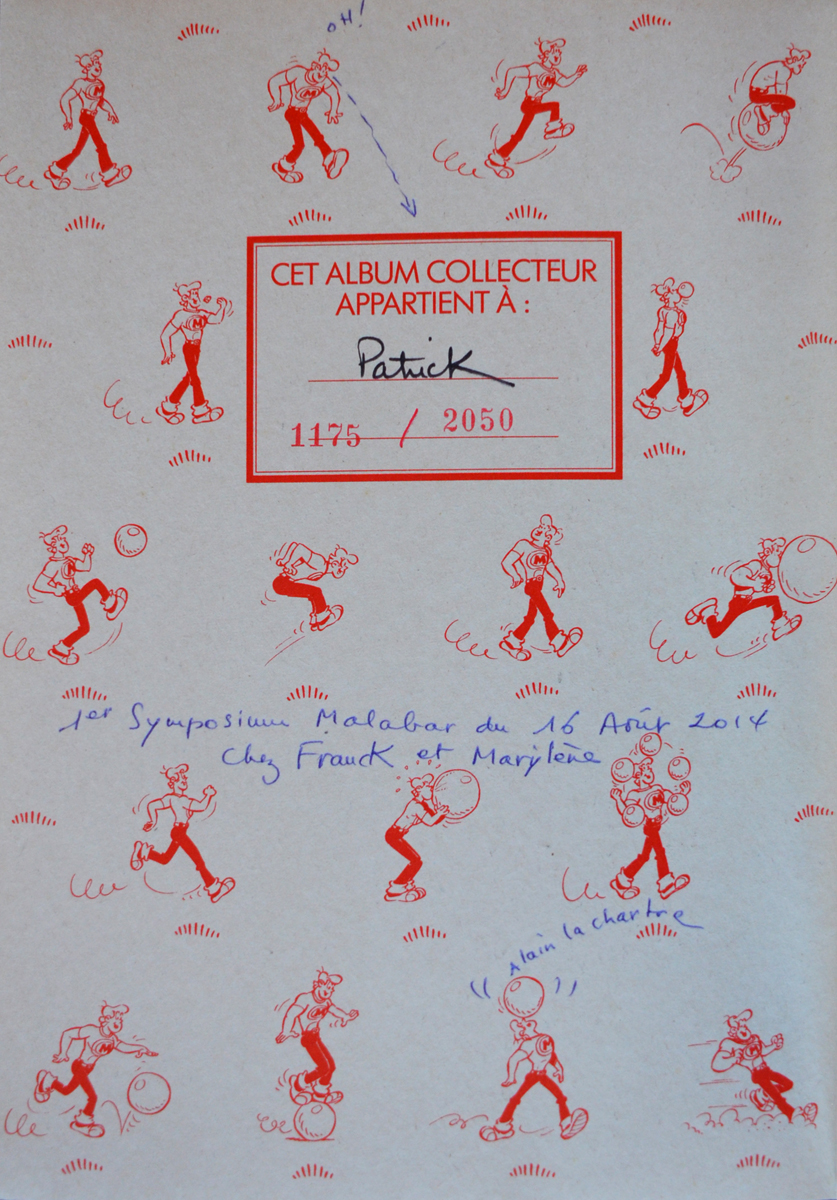 OH!
CET ALBUM COLLECTEUR
APPARTIENT À :
Patrick
1175 / 2050
1er Symposium Malabar du 16 Août 2014
Chez Franck et Marylène
Alain la chartre